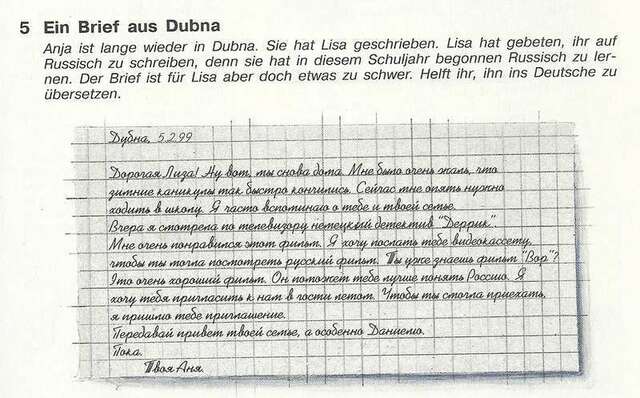 5 Ein Brief aus Dubna
Anja ist lange wieder in Dubna. Sie hat Lisa geschrieben. Lisa hat gebeten, ihr auf
Russisch zu schreiben, denn sie hat in diesem Schuljahr begonnen Russisch zu ler-
nen. Der Brief ist für Lisa aber doch etwas zu schwer. Helft ihr, ihn ins Deutsche zu
übersetzen.
Дубна, 5.2.99
Дорогая Лиза! Ну вот, мы снова дома. Мне было очень жаль, что
зимние каникулы так быстро кончились. Сейчас мне опять нужно
ходить в школу. Я часто вспоминаю о тебе и твоей семье.
Вчера я смотрела по телевизору немецкий детектив "Деррик".
Мне очень понравился этот фильм. Я хочу послать тебе видеокассету,
чтобы ты могла посмотреть русский фильм. Ты уже знаешь фильм "Вор"?
Это очень хороший фильм. Он поможет тебе лучше понять Россию. Я
хочу тебя пригласить к нам в гости летом. Чтобы ты смогла приехать,
я пришлю тебе приглашение.
Передавай привет твоей семье, а особенно Даниелю.
Пока.
Твоя Аня.